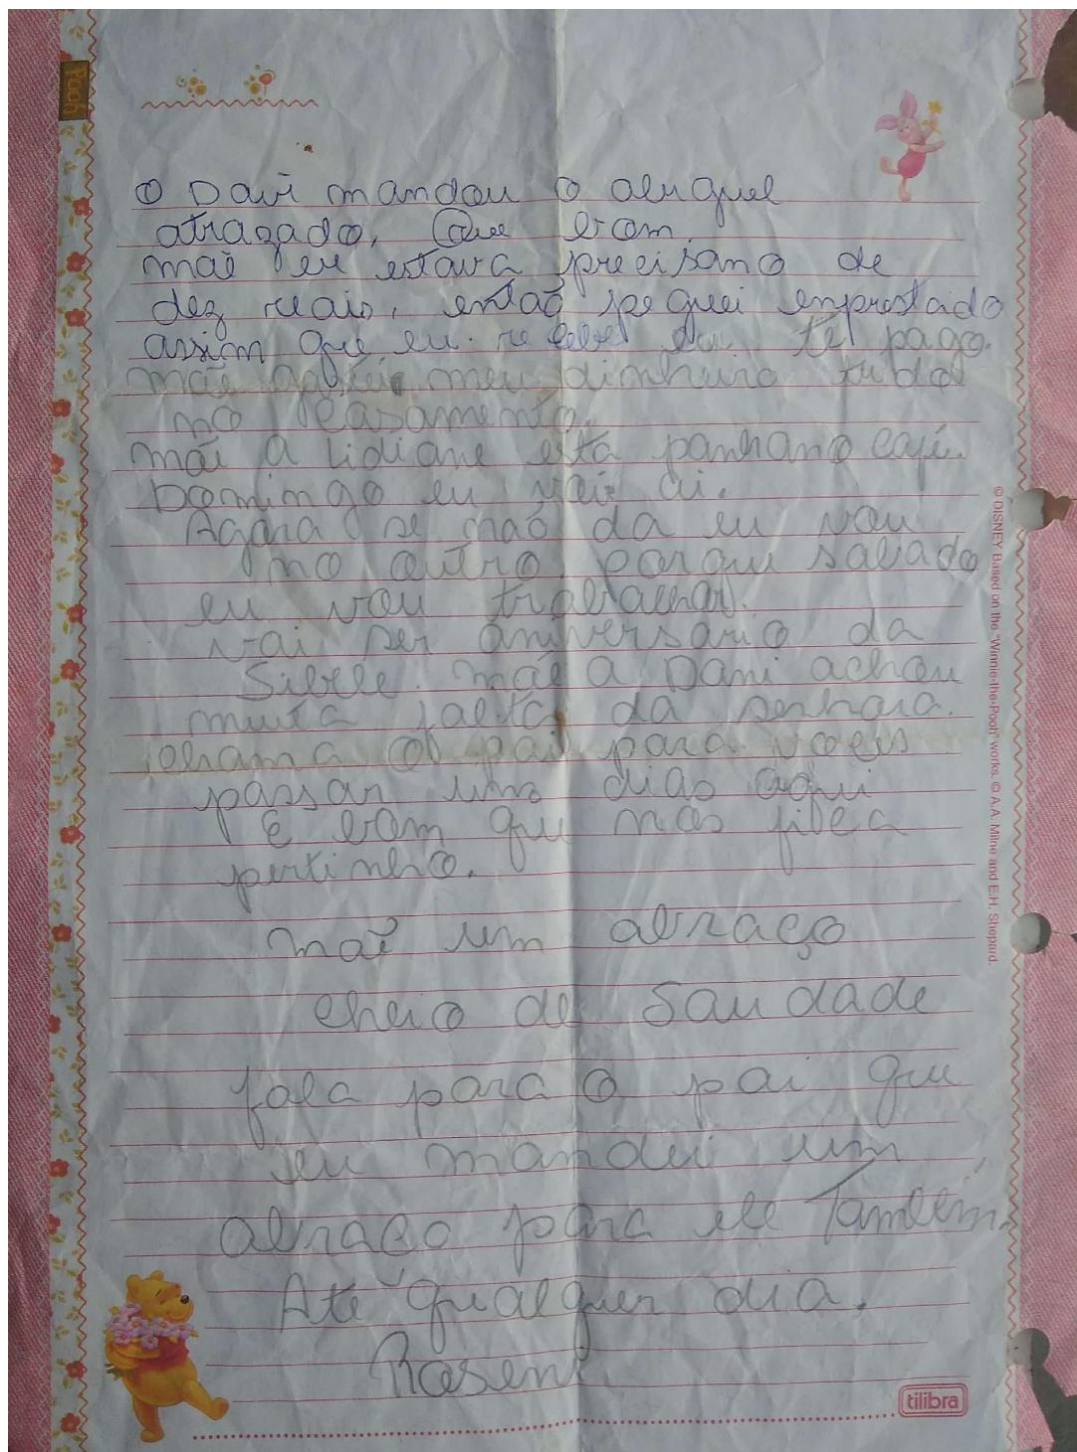 Pooh
O Davi mandou o aluguel
atrazado, Que bom.
mãe eu estava precisano de
dez reais, então peguei emprestado
assim que eu recebe eu te pago.
mãe gastei meu dinheiro tudo
no casamento.
mãe a Lidiane está panhano café.
Domingo eu vai ai.
Agora se não da eu vou
no outro porque sabado
eu vou trabalhar.
vai ser aniversário da
Sibele. mãe a Dani achou
muita falta da senhora.
chama o pai para voceis
passar uns dias aqui
é bom que nos fica
pertinho.
mãe um abraço
cheio de Saudade
fala para o pai que
eu mandei um
abraço para ele Também.
Até qualquer dia.
Roseni
© DISNEY Based on the "Winnie-the-Pooh" works. © A.A. Milne and E.H. Shepard.
tilibra